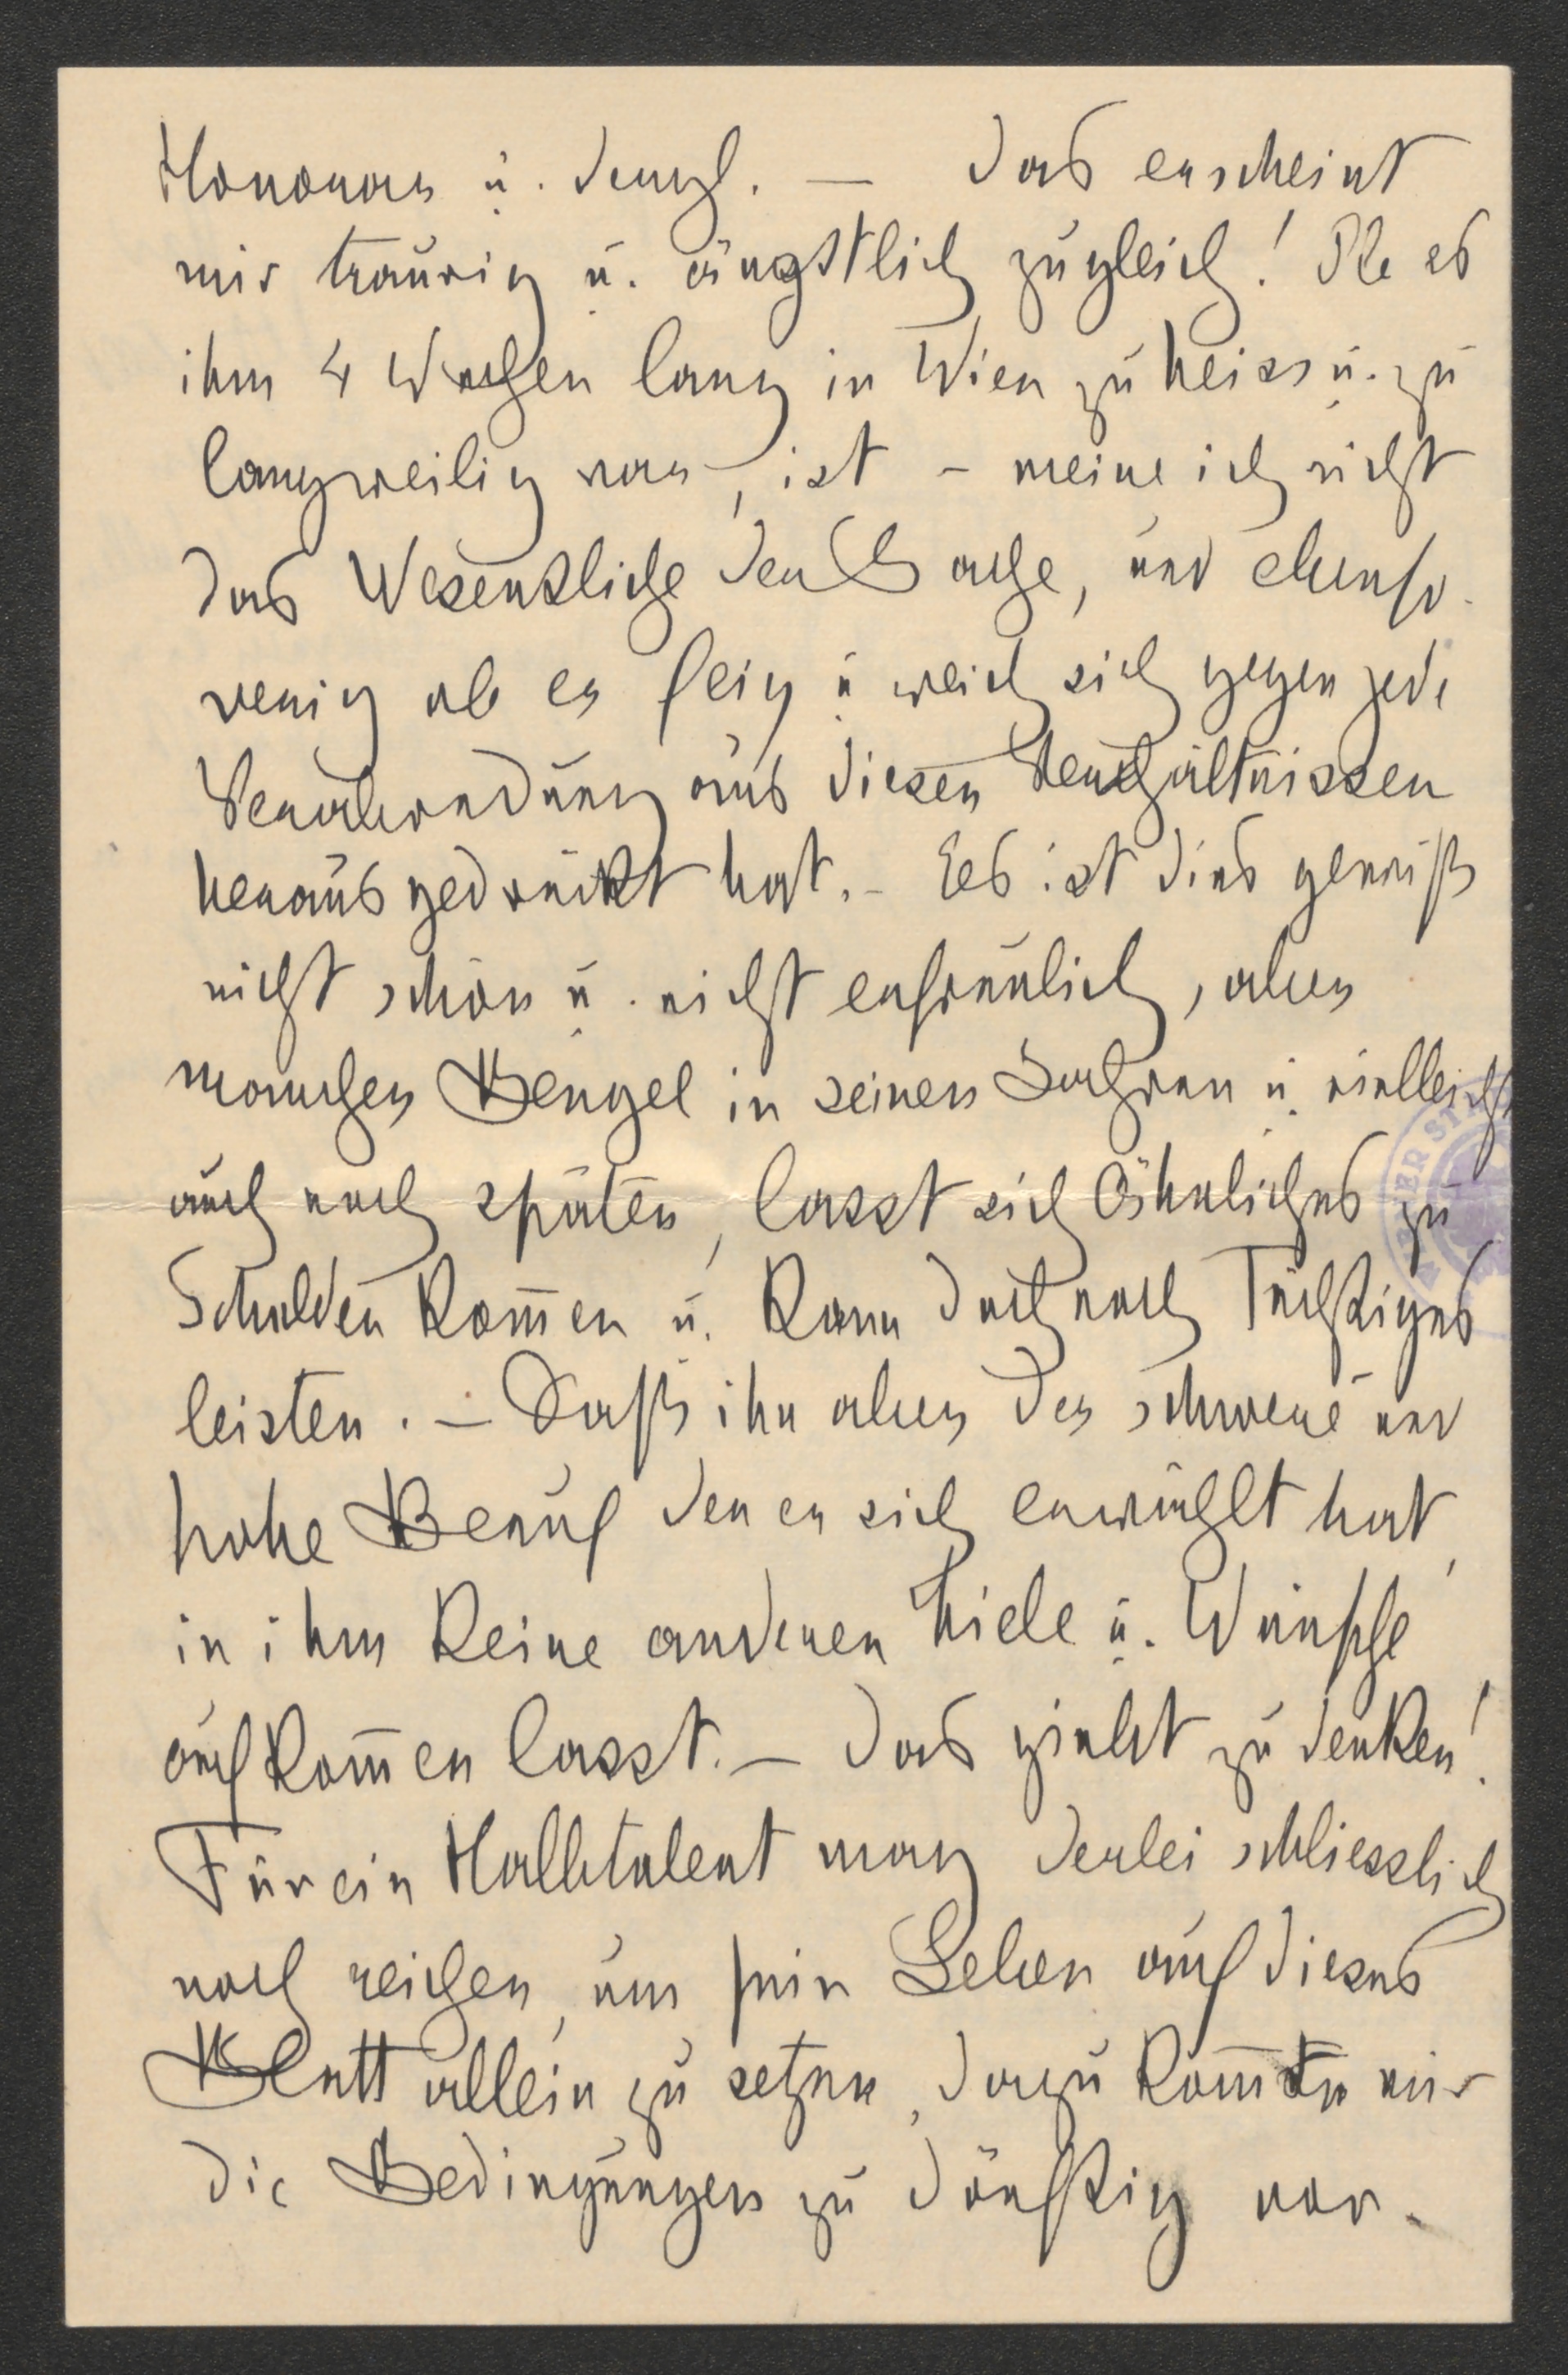 Honorar u. dergl. — das erscheint
mir traurig u. ängstlich zugleich! Ob es
ihm 4 Wochen lang in Wien zu heiss u. zu
langweilig war, ist – meine ich nicht
das Wesentliche der Sache, und ebenso
wenig ob er feig u. weich sich gegen jede
Verabredung aus diesen Verhältnissen
herausgedrückt hat. – Es ist dies gewiß
nicht schön u. nicht erfreulich, aber
mancher Bengel in seinen Jahren u. vielleicht
auch noch später, lasst sich Ähnliches zu
Schulden kom̄en u. kann doch noch Tüchtiges
leisten. – Daß ihn aber der schwere und
hohe Beruf den er sich erwählt hat,
in ihm keine anderen Ziele u. Wünsche
aufkom̄en lasst. – das giebt zu denken!
Für ein Halbtalent mag derlei schliesslich
noch reichen, um sein Leben auf dieses
Blatt allein zu setzen, dazu kom̄en mir
die Bedingungen zu dürftig vor.